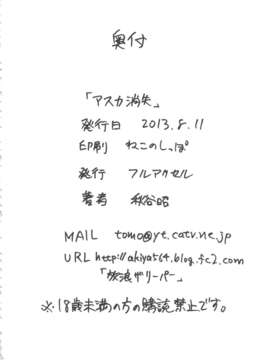 奥付
「アスカ消失」
発行日 2013.8.11
印刷 ねこのしっぽ
発行 フルアクセル
著者 秋谷昭
MAIL tomo@yt.catv.ne.jp
URL http://akiya564.blog.fc2.com
「放浪ザリーパー」
※18歳未満の方の購読禁止です。